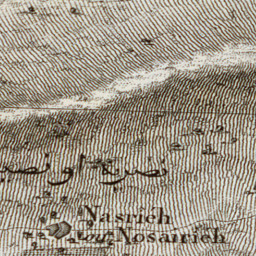 نصرية او
Nasrieh
ou Nosairieh